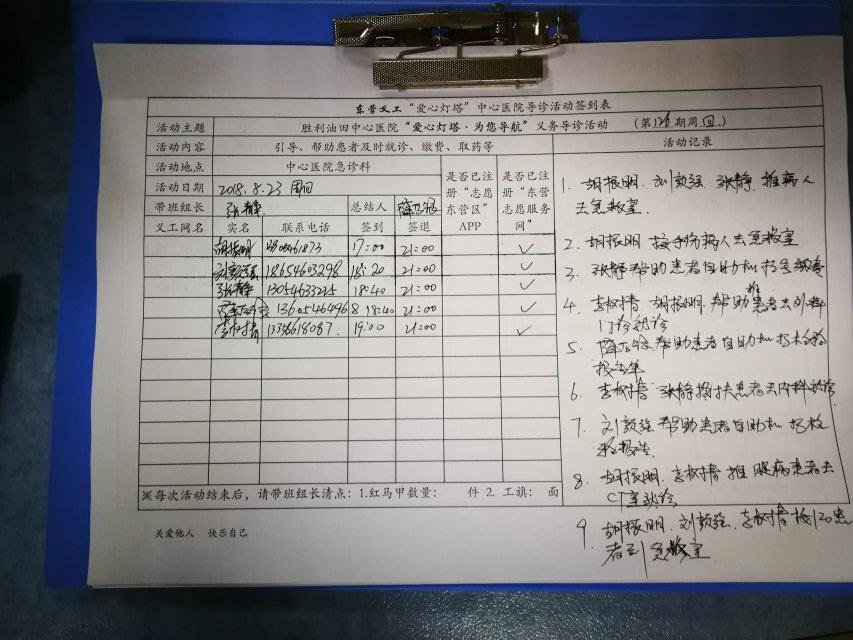 东营义工“爱心灯塔”中心医院导诊活动签到表
活动主题 胜利油田中心医院“爱心灯塔·为您导航”义务导诊活动 （第126期周四）
活动内容 引导、帮助患者及时就诊、缴费、取药等 活动记录
活动地点 中心医院急诊科 是否已注册“志愿东营区”APP 是否已注册“东营志愿服务网”
活动日期 2018.8.23 周四
带班组长 张静 总结人
义工网名 实名 联系电话 签到 签退
胡振明 17:00 21:00 ✓
刘毅强 18654603298 18:20 21:00 ✓
张静 13054633225 18:40 21:00 ✓
13605464968 18:40 21:00 ✓
李树清 13356618087 19:00 21:00 ✓
※每次活动结束后，请带班组长清点：1.红马甲数量： 件 2.工旗： 面
关爱他人 快乐自己
1. 胡振明 刘毅强 张静 推病人
去急救室.
2. 胡振明 接手伤病人去急救室
3. 张静帮助患者自助机
4. 李树清 胡振明 帮助推患者去外科
门诊就诊
5. 帮助患者自助机打检验
报告单
6. 李树清 张静搀扶患者去内科就诊
7. 刘毅强 帮助患者自助机打检
验报告.
8. 胡振明. 李树清 推 患者去
CT室就诊
9. 胡振明. 刘毅强. 李树清 接120患
者到急救室.